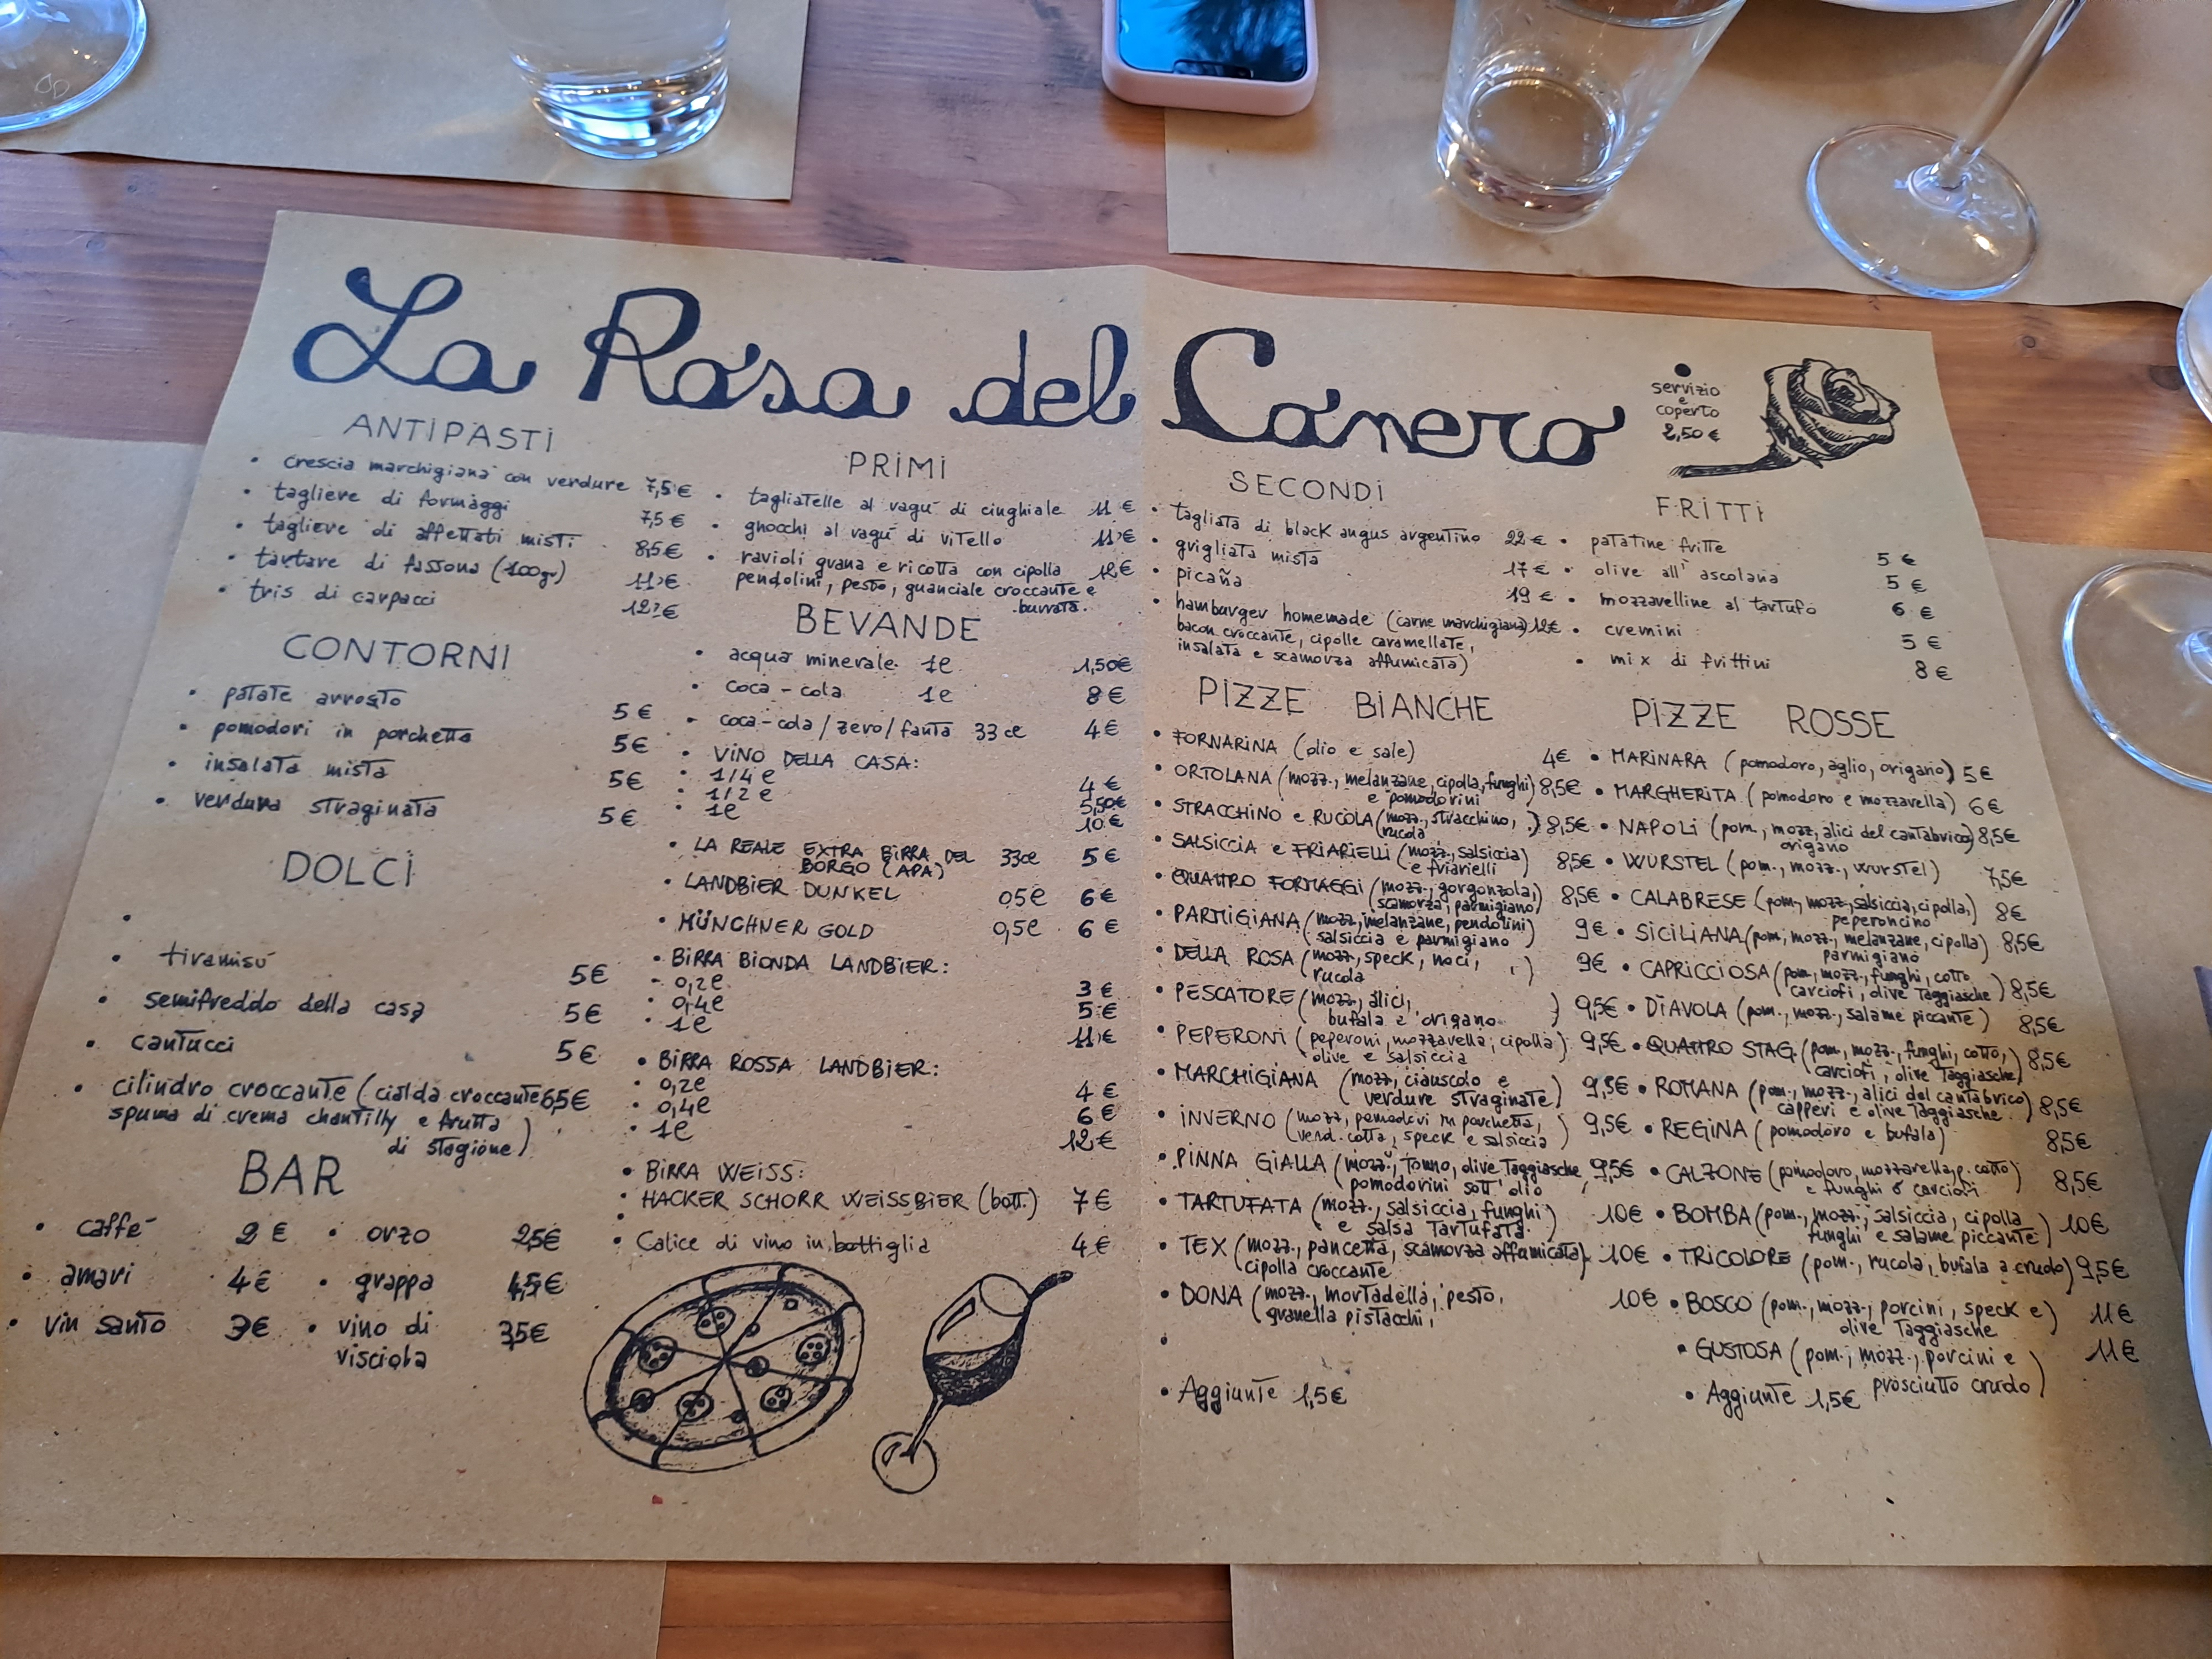 La Rosa del Conero
servizio
e
coperto
2,50 €
ANTIPASTI
• crescia marchigiana con verdure 7,5 €
• tagliere di formaggi 7,5 €
• tagliere di affettati misti 8,5 €
• tartare di fassona (100gr) 11 €
• tris di carpacci 12 €
CONTORNI
• patate arrosto 5 €
• pomodori in porchetta 5 €
• insalata mista 5 €
• verdura straginata 5 €
DOLCI
• tiramisú 5 €
• semifreddo della casa 5 €
• cantucci 5 €
• cilindro croccante (cialda croccante 6,5 €
spuma di crema chantilly e frutta
di stagione)
BAR
• caffè 2 € • orzo 2,5 €
• amari 4 € • grappa 4,5 €
• vin santo 3 € • vino di 3,5 €
visciola
PRIMI
• tagliatelle al ragú di cinghiale 11 €
• gnocchi al ragú di vitello 11 €
• ravioli grana e ricotta con cipolla 12 €
pendolini, pesto, guanciale croccante e
burrata.
BEVANDE
• acqua minerale 1l 1,50 €
• coca-cola 1l 8 €
• coca-cola/zero/fanta 33cl 4 €
• VINO DELLA CASA:
• 1/4 l 4 €
• 1/2 l 5,50 €
• 1l 10 €
• LA REALE EXTRA BIRRA DEL 33cl 5 €
BORGO (APA)
• LANDBIER DUNKEL 0,5l 6 €
• MÜNCHNER GOLD 0,5l 6 €
• BIRRA BIONDA LANDBIER:
• 0,2l 3 €
• 0,4l 5 €
• 1l 11 €
• BIRRA ROSSA LANDBIER:
• 0,2l 4 €
• 0,4l 6 €
• 1l 12 €
• BIRRA WEISS:
• HACKER SCHORR WEISSBIER (bott.) 7 €
• Calice di vino in bottiglia 4 €
SECONDI
• tagliata di black angus argentino 22 €
• grigliata mista 17 €
• picaña 19 €
• hamburger homemade (carne marchigiana) 12 €
bacon croccante, cipolle caramellate,
insalata e scamorza affumicata)
FRITTI
• patatine fritte 5 €
• olive all' ascolana 5 €
• mozzarelline al tartufo 6 €
• cremini 5 €
• mix di frittini 8 €
PIZZE BIANCHE
• FORNARINA (olio e sale) 4 €
• ORTOLANA (mozz., melanzane, cipolla, funghi) 8,5 €
e pomodorini
• STRACCHINO e RUCOLA (mozz., stracchino, ) 8,5 €
rucola
• SALSICCIA e FRIARIELLI (mozz., salsiccia) 8,5 €
e friarielli
• QUATTRO FORMAGGI (mozz., gorgonzola,) 8,5 €
scamorza, parmigiano
• PARMIGIANA (mozz, melanzane, pendolini) 9 €
salsiccia e parmigiano
• DELLA ROSA (mozz, speck, noci, ) 9 €
rucola
• PESCATORE (mozz, alici, ) 9,5 €
bufala e origano
• PEPERONI (peperoni, mozzarella, cipolla) 9,5 €
olive e salsiccia
• MARCHIGIANA (mozz, ciauscolo e 9,5 €
verdure straginate)
• INVERNO (mozz, pomodori in porchetta, ) 9,5 €
verd. cotta, speck e salsiccia
• PINNA GIALLA (mozz., tonno, olive Taggiasche, 9,5 €
pomodorini sott' olio
• TARTUFATA (mozz., salsiccia, funghi) 10 €
e salsa tartufata
• TEX (mozz., pancetta, scamorza affumicata) 10 €
cipolla croccante
• DONA (mozz., mortadella, pesto, 10 €
granella pistacchi,
• Aggiunte 1,5 €
PIZZE ROSSE
• MARINARA (pomodoro, aglio, origano) 5 €
• MARGHERITA (pomodoro e mozzarella) 6 €
• NAPOLI (pom., mozz, alici del cantabrico) 8,5 €
origano
• WURSTEL (pom., mozz., wurstel) 7,5 €
• CALABRESE (pom., mozz, salsiccia, cipolla,) 8 €
peperoncino
• SICILIANA (pom, mozz., melanzane, cipolla) 8,5 €
parmigiano
• CAPRICCIOSA (pom, mozz., funghi, cotto ) 8,5 €
carciofi, olive Taggiasche
• DIAVOLA (pom., mozz., salame piccante) 8,5 €
• QUATTRO STAG. (pom, mozz., funghi, cotto,) 8,5 €
carciofi, olive Taggiasche
• ROMANA (pom., mozz., alici del cantabrico) 8,5 €
capperi e olive Taggiasche
• REGINA (pomodoro e bufala) 8,5 €
• CALZONE (pomodoro, mozzarella, p. cotto) 8,5 €
e funghi o carciofi
• BOMBA (pom., mozz., salsiccia, cipolla ) 10 €
funghi e salame piccante
• TRICOLORE (pom., rucola, bufala a crudo) 9,5 €
• BOSCO (pom., mozz., porcini, speck e) 11 €
olive Taggiasche
• GUSTOSA (pom., mozz., porcini e 11 €
prosciutto crudo)
• Aggiunte 1,5 €